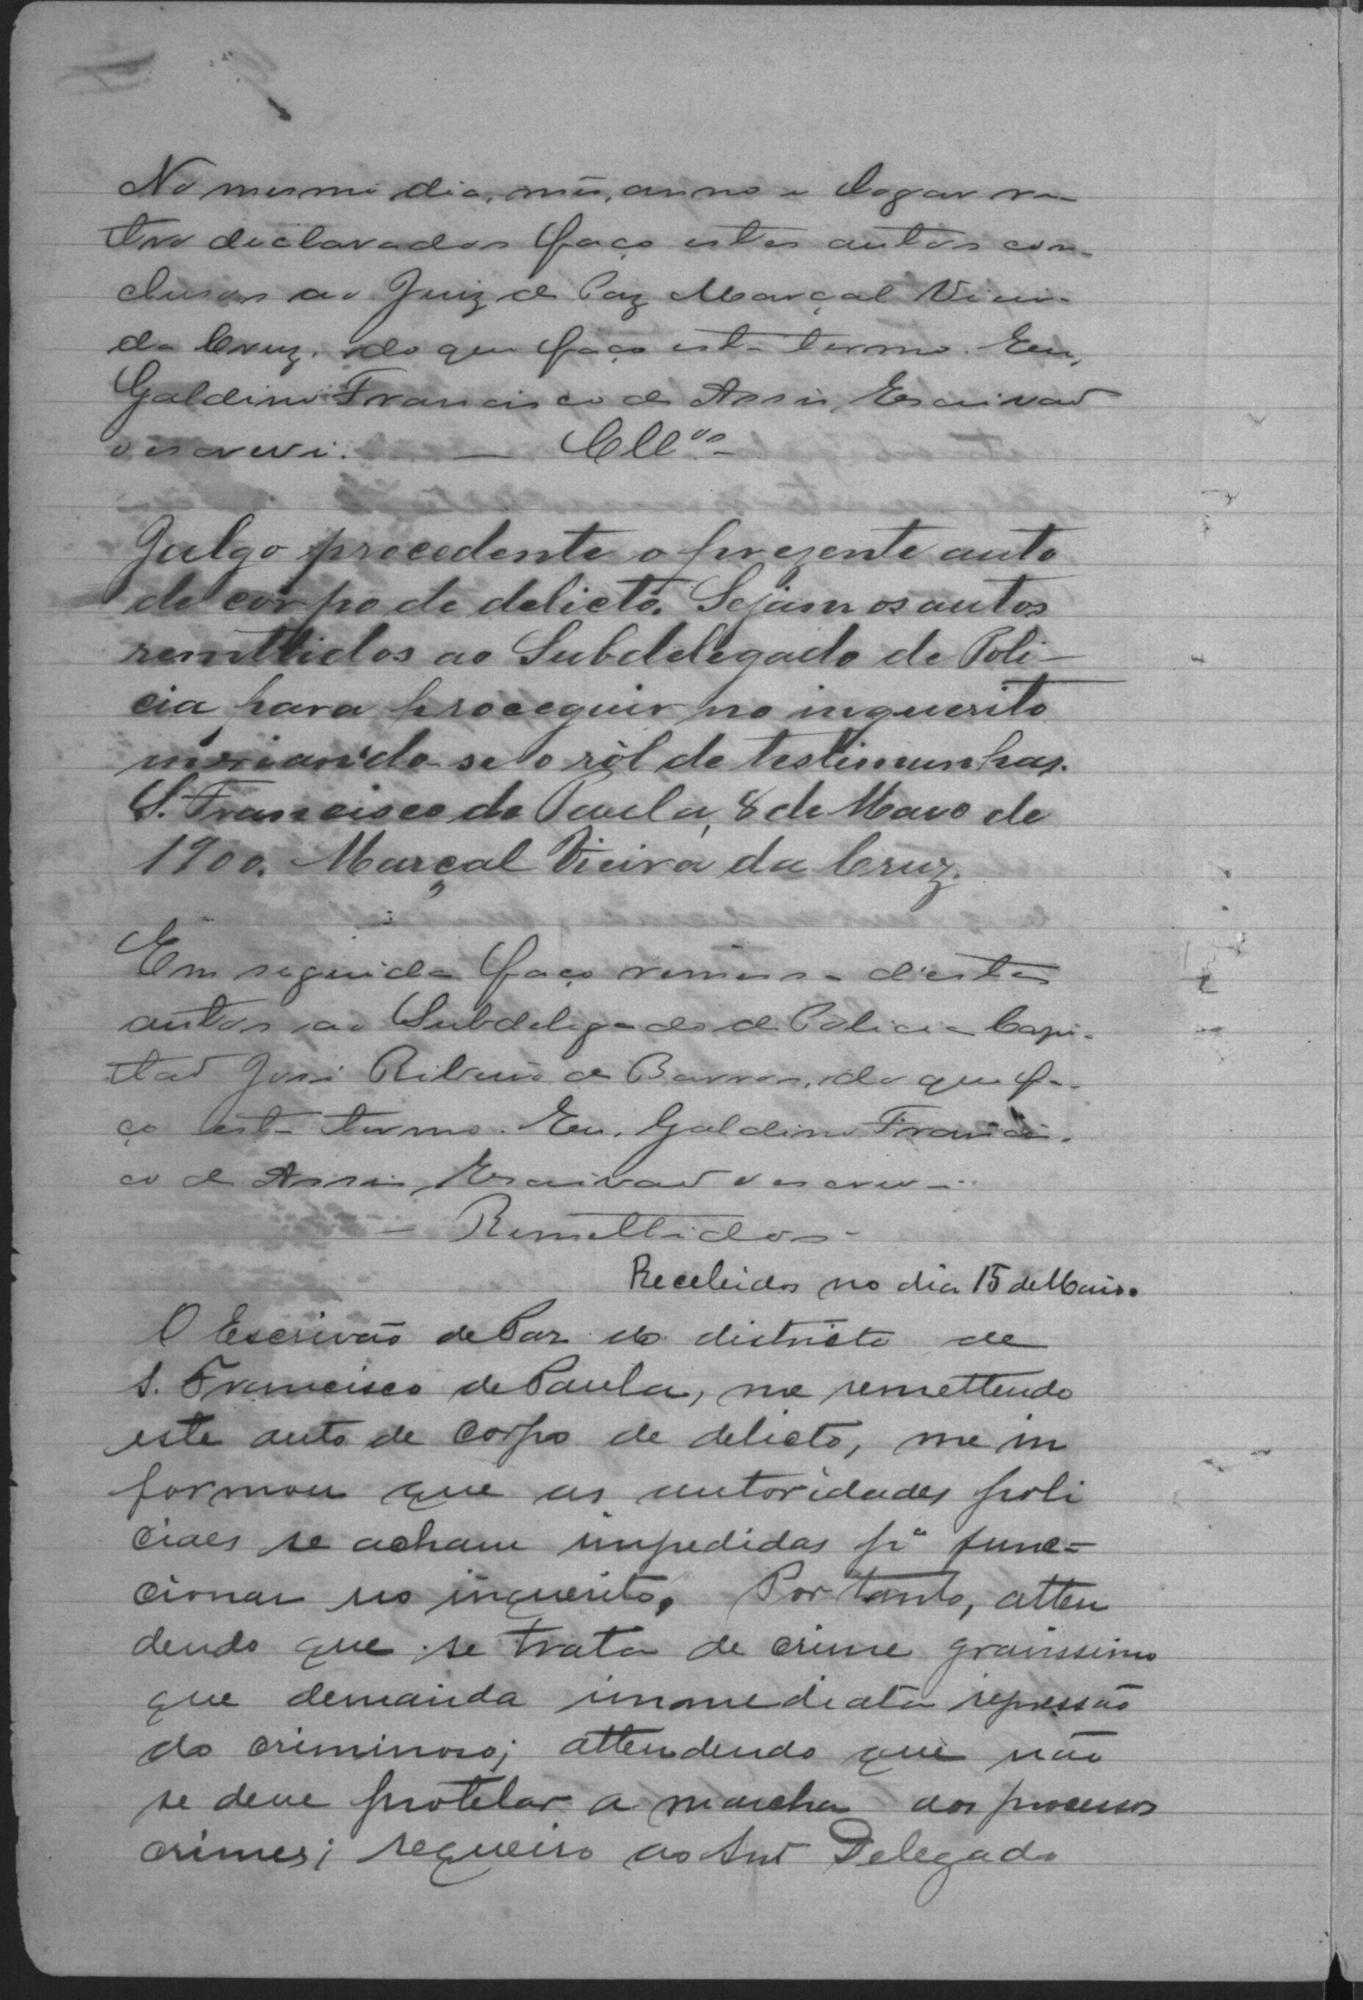 No mesmo dia, mês, anno e logar re-
tro declarados faço estes autos con-
clusos ao Juiz de Paz Marçal Vieira
da Cruz, do que faço este termo. Eu,
Galdino Francisco de Assis, Escrivaõ
o escrevi. — Cll^os —
Julgo procedente o prezente auto
de corpo de delicto. Sejam os autos
remettidos ao Subdelegado de Poli-
cia para proceguir no inquerito
se o ról de testimunhas.
S. Francisco de Paula, 8 de Maio de
1900. Marçal Vieira da Cruz.
Em seguida faço remessa d'estes
autos ao Subdelegado de Policia Capi-
taõ José Ribeiro de Barros, do que fa-
ço este termo. Eu, Galdino Francis-
co de Assis, Escrivaõ o escrevi.
— Remettidos —
Recebidos no dia 15 de Maio.
O Escrivão de Paz do districto de
S. Francisco de Paula, me remettendo
este auto de corpo de delicto, me in
formou que as autoridades poli
ciaes se acham impedidas pª func-
cionar no inquerito. Por tanto, atten
dendo que se trata de crime gravissimo
que demanda immediata repressão
do criminoso; attendendo que não
se deve protelar a marcha dos processos
crimes; requeiro ao Snr Delegado